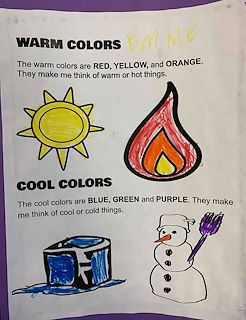 WARM COLORS EMME
The warm colors are RED, YELLOW, and ORANGE.
They make me think of warm or hot things.
COOL COLORS
The cool colors are BLUE, GREEN and PURPLE. They make
me think of cool or cold things.